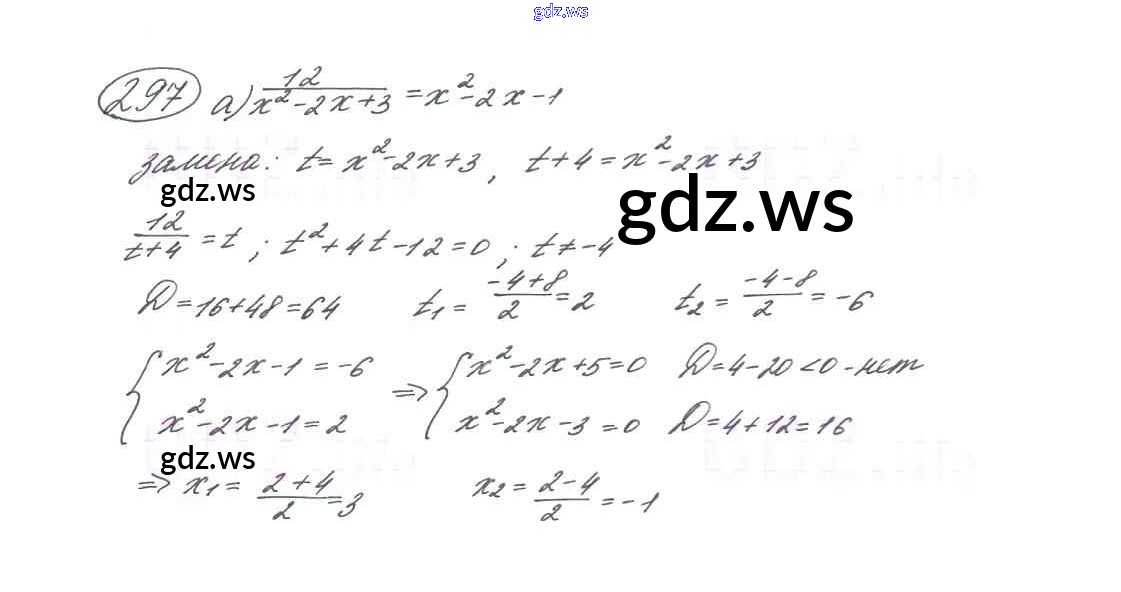 gdz.ws
297 а) 12/(x²-2x+3) = x²-2x-1
замена: t = x²-2x+3, t+4 = x²-2x+3
gdz.ws gdz.ws
12/(t+4) = t ; t²+4t-12=0 ; t≠-4
D=16+48=64 t₁ = (-4+8)/2 = 2 t₂ = (-4-8)/2 = -6
{ x²-2x-1 = -6 => { x²-2x+5=0 D=4-20<0 - нет
x²-2x-1=2 x²-2x-3=0 D=4+12=16
gdz.ws
=> x₁ = (2+4)/2 = 3 x₂ = (2-4)/2 = -1